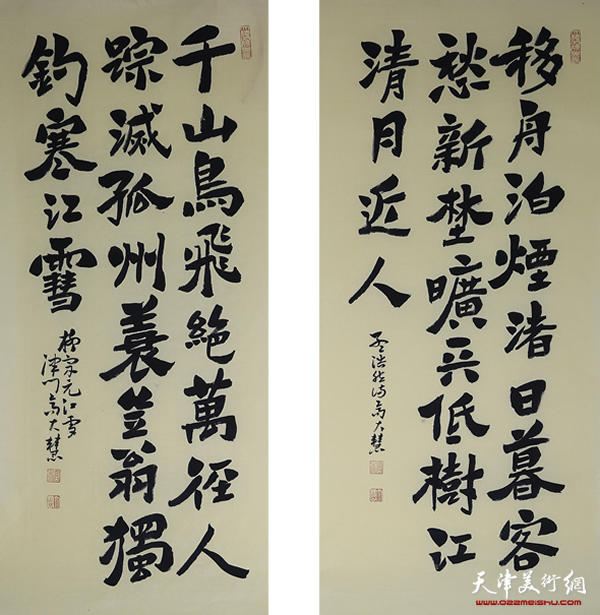 移舟泊煙渚日暮客
愁新埜曠天低樹江
清月近人
孟浩然诗高大慧
千山鳥飛絕萬徑人
踪滅孤州蓑笠翁獨
釣寒江䨮
柳宗元江雪
津门高大慧
天津美術網
www.022meishu.com